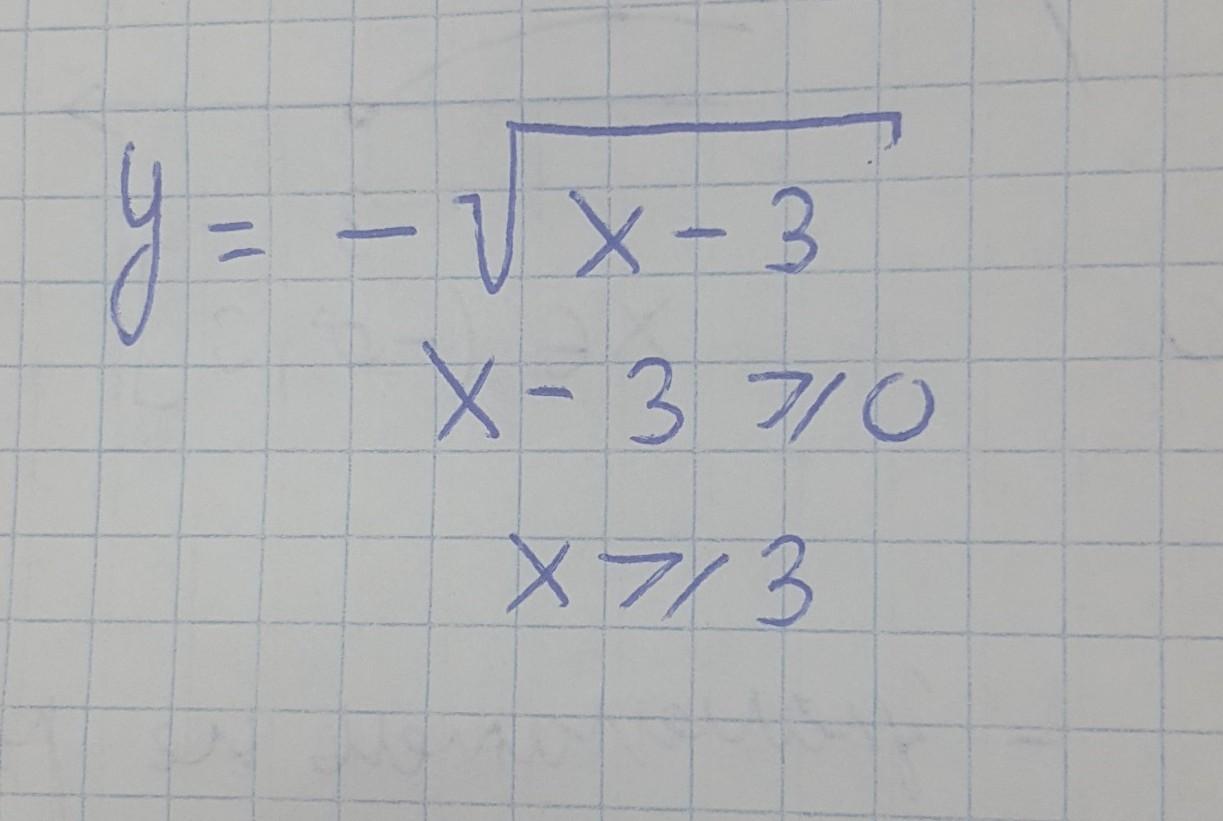 y = - √x - 3
x - 3 ⩾ 0
x ⩾ 3